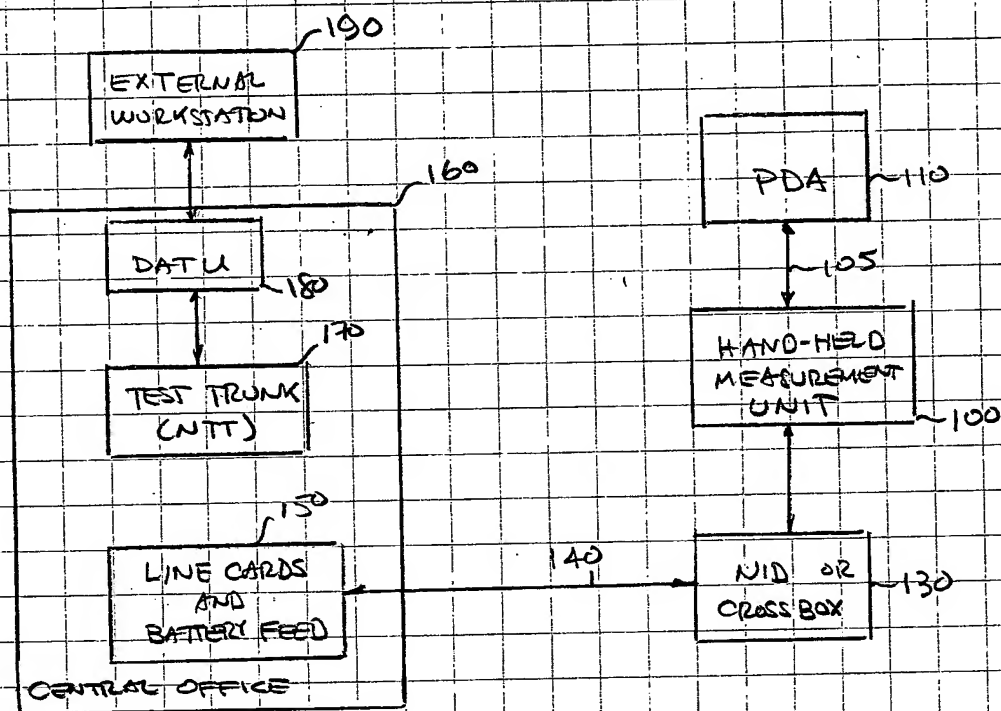 190
EXTERNAL
WORKSTATION
160
DATU
180
170
TEST TRUNK
(NTT)
150
LINE CARDS
AND
BATTERY FEED
CENTRAL OFFICE
PDA
110
105
HAND-HELD
MEASUREMENT
UNIT
100
140
NID OR
CROSS BOX
130